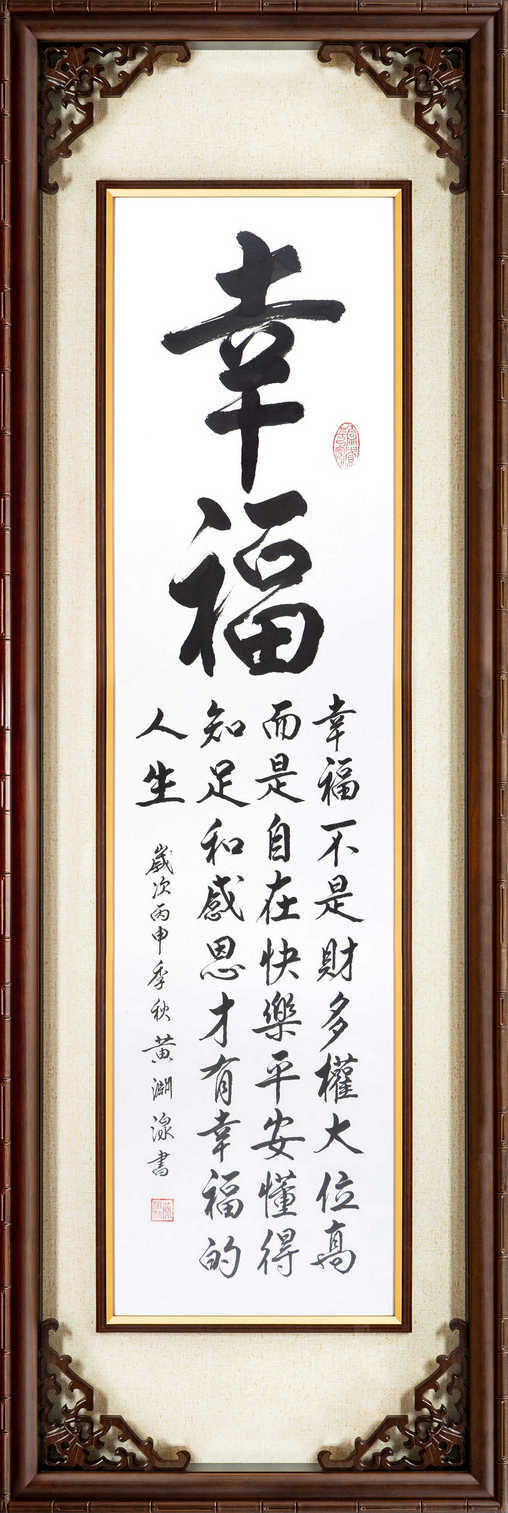 幸福
幸福不是財多權大位高
而是自在快樂平安懂得
知足和感恩才有幸福的
人生
歲次丙申季秋黃渊湶書